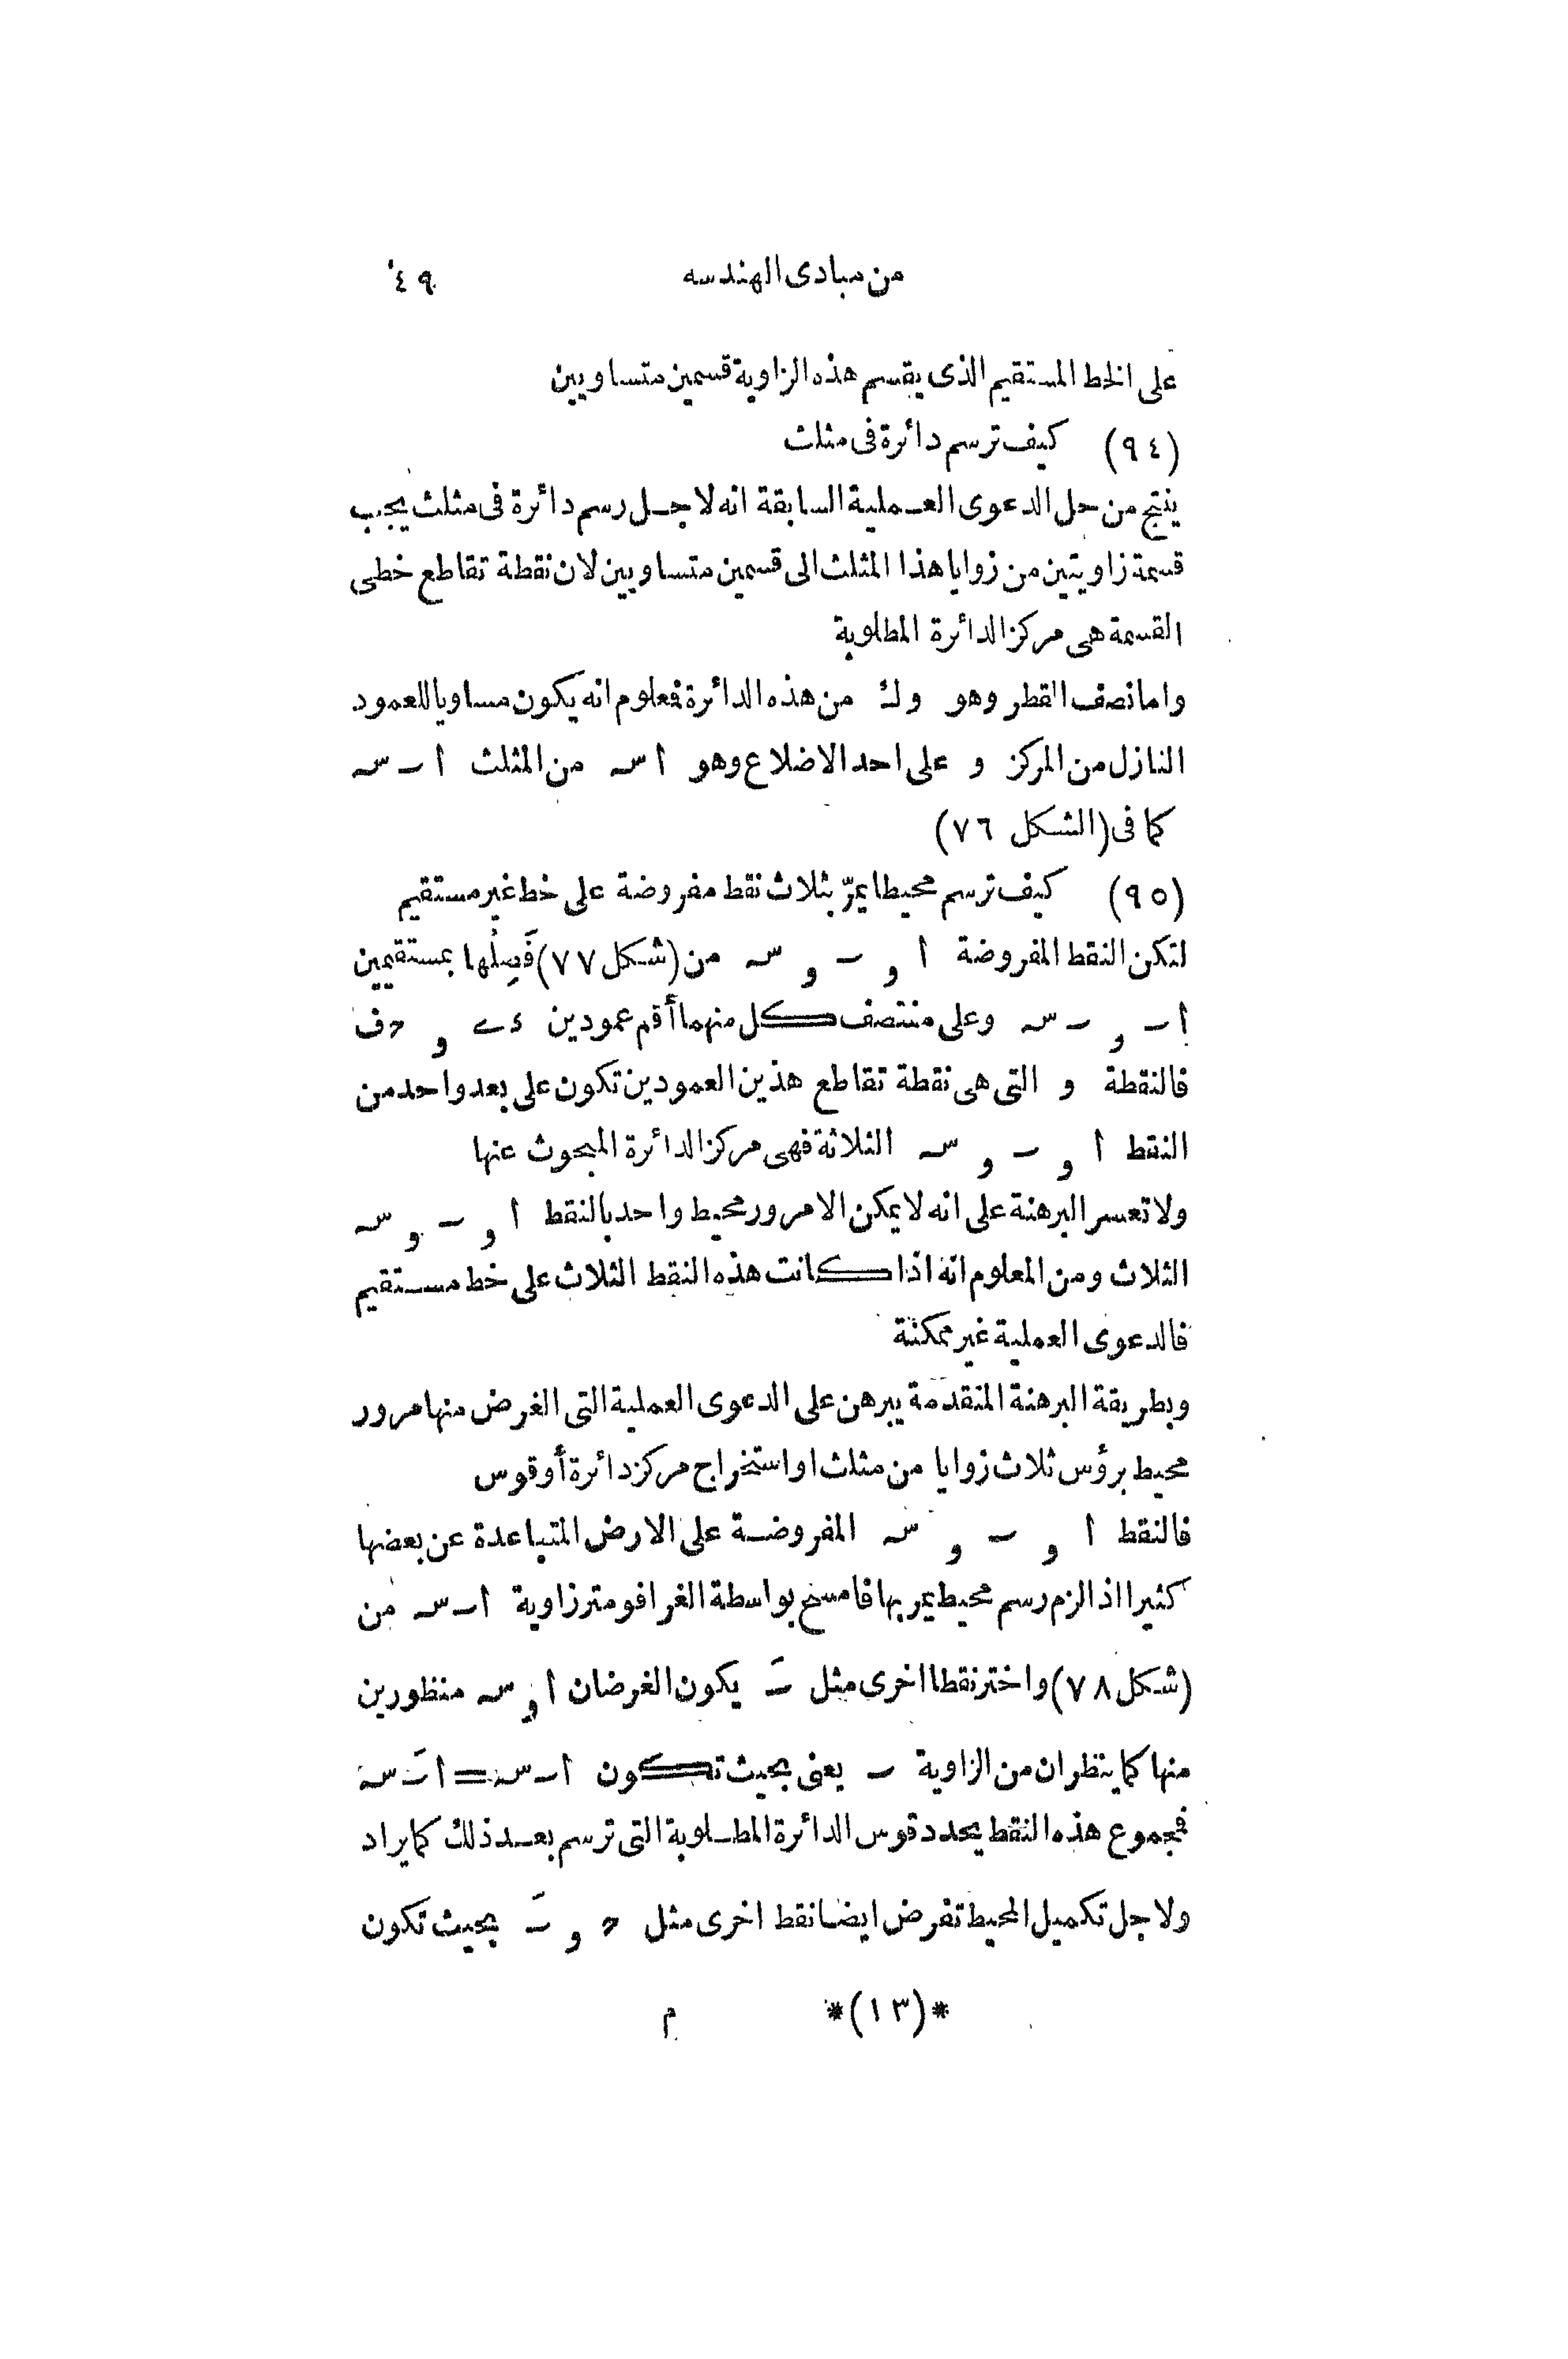 من مبادى الهندسه ٤٩
على الخط المستقيم الذى يقسم هذه الزاوية قسمين متساويين
(٩٤) كيف ترسم دائرة فى مثلث
ينتج من حل الدعوى العملية السابقة انه لاجل رسم دائرة فى مثلث يجب
قسمة زاويتين من زوايا هذا المثلث الى قسمين متساويين لان نقطة تقاطع خطى
القسمة هى مركز الدائرة المطلوبة
واما نصف القطر وهو وك من هذه الدائرة فعلوم انه يكون مساويا للعمود
النازل من المركز و على احد الاضلاع وهو ا سـ من المثلث ا ٮ سـ
كما فى (الشكل ٧٦)
(٩٥) كيف ترسم محيطا يمرّ بثلاث نقط مفروضة على خط غير مستقيم
لتكن النقط المفروضة ا و ٮ و سـ من (شكل ٧٧) فَصِلْها بمستقيمين
اٮ و ٮ سـ وعلى منتصف كل منهما أقم عمودين ء ے و ھ ف
فالنقطة و التى هى نقطة تقاطع هذين العمودين تكون على بعد واحد من
النقط ا و ٮ و سـ الثلاثة فهى مركز الدائرة المبحوث عنها
ولا تعسر البرهنة على انه لا يمكن الا مرور محيط واحد بالنقط ا و ٮ و سـ
الثلاث ومن المعلوم انه اذا كانت هذه النقط الثلاث على خط مستقيم
فالدعوى العملية غير ممكنة
وبطريقة البرهنة المتقدمة يبرهن على الدعوى العملية التى الغرض منها مرور
محيط برؤس ثلاث زوايا من مثلث او استخراج مركز دائرة أو قوس
فالنقط ا و ٮ و سـ المفروضة على الارض المتباعدة عن بعضها
كثيرا اذا لزم رسم محيط يمر بها فامسح بواسطة الغرافومتر زاوية ا ٮ سـ من
(شكل ٧٨) واختر نقطا اخرى مثل ٮَ يكون الغرضان ا و سـ منظورين
منها كما ينظران من الزاوية ٮ يعنى بحيث تكون ا ٮ سـ = ا ٮَ سـ
فمجموع هذه النقط يحدد قوس الدائرة المطلوبة التى ترسم بعد ذلك كما يراد
ولاجل تكميل المحيط تفرض ايضا نقط اخرى مثل ھ و ٮَ بحيث تكون
*(١٣)* م